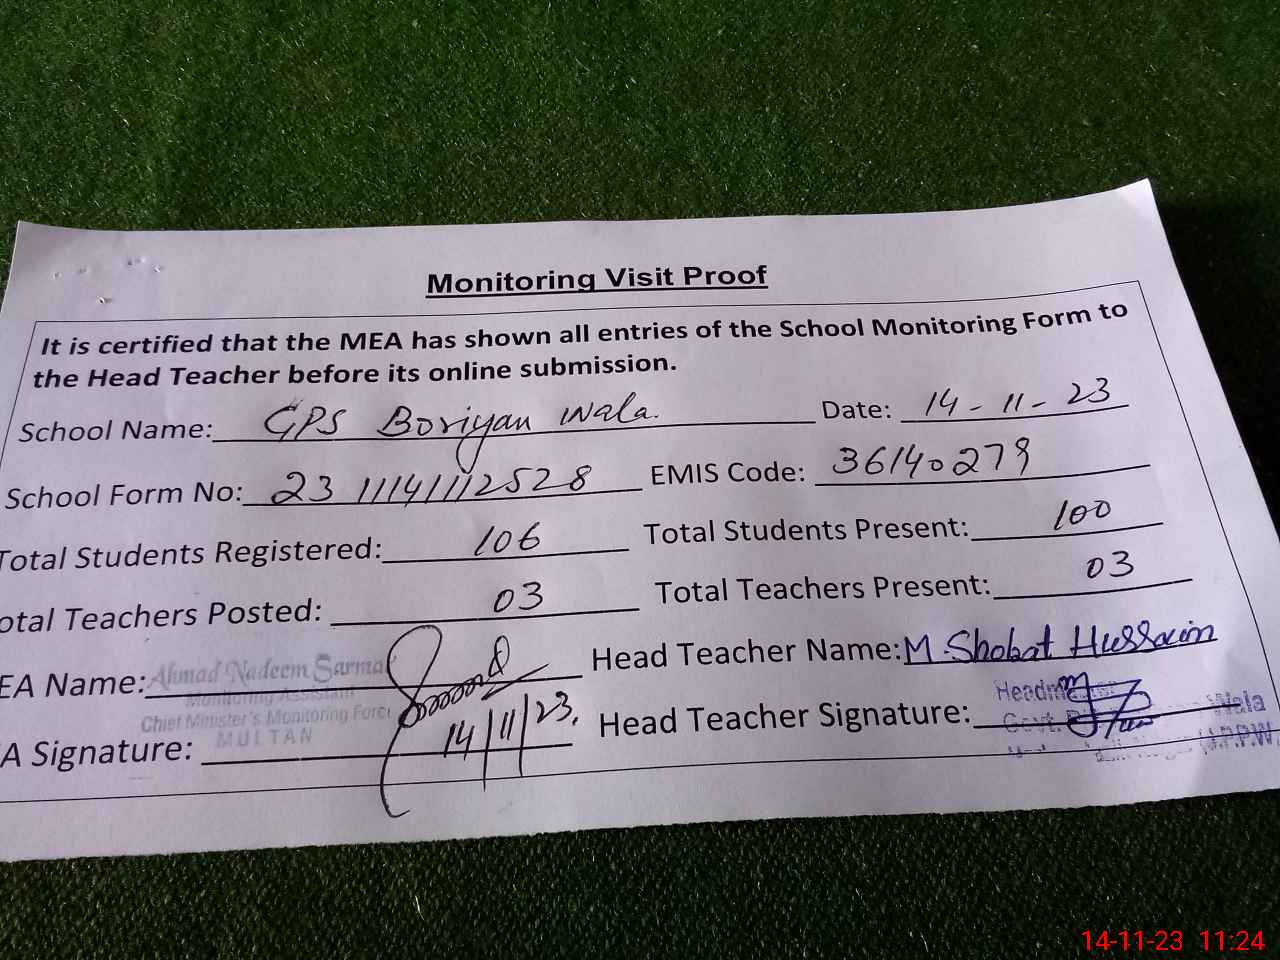 Monitoring Visit Proof
It is certified that the MEA has shown all entries of the School Monitoring Form to
the Head Teacher before its online submission.
School Name: GPS Boriyan Wala. Date: 14-11-23
School Form No: 23 11141112528 EMIS Code: 36140279
Total Students Registered: 106 Total Students Present: 100
otal Teachers Posted: 03 Total Teachers Present: 03
EA Name: Ahmad Nadeem Sarmad Head Teacher Name: M. Shobat Hussain
Monitoring Assistant
Chief Minister's Monitoring Force
MULTAN
A Signature: 14/11/23. Head Teacher Signature:
Govt. Wala
14-11-23 11:24